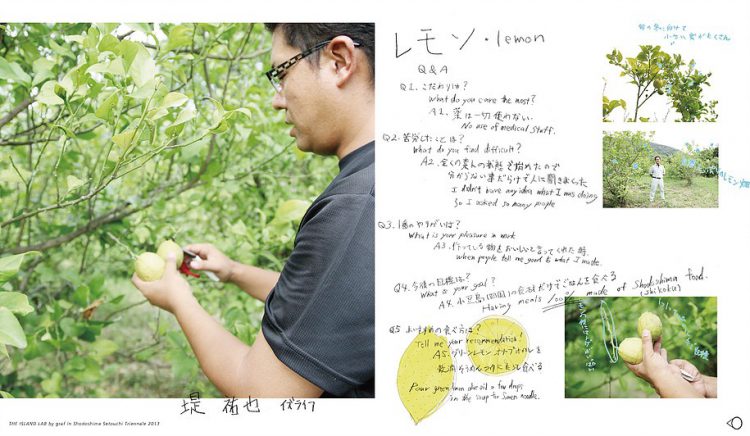 レモン・lemon
Q & A
Q1. こだわりは?
What do you care the most?
A1. 薬は一切使わない。
No use of medical staff.
Q2. 苦労したことは?
What do you find difficult?
A2. 全くの素人の状態で始めたので
分からない事だらけで人に聞きまくった
I didn't have any idea what I was doing
So I asked so many people
Q3. のやりがいは?
What is your pleasure in work
A3. 作っている物をおいしいと言ってくれた時
when people tell me good to what I made.
Q4. 今後の目標は?
What is your goal?
A4. 小豆島(四国)の食材だけでごはんを食べる
Having meals 100% made of Shodoshima food.
(Shikoku)
Q5. おすすめの食べ方は?
Tell me your recommendation!
A5. グリーンレモンオリーブオイルを
そうめん
Pour green lemon olive oil a few drops
in the soup for Somen noodle.
レモン畑
堤 祐也
THE ISLAND LAB by graf in Shodoshima Setouchi Triennale 2013